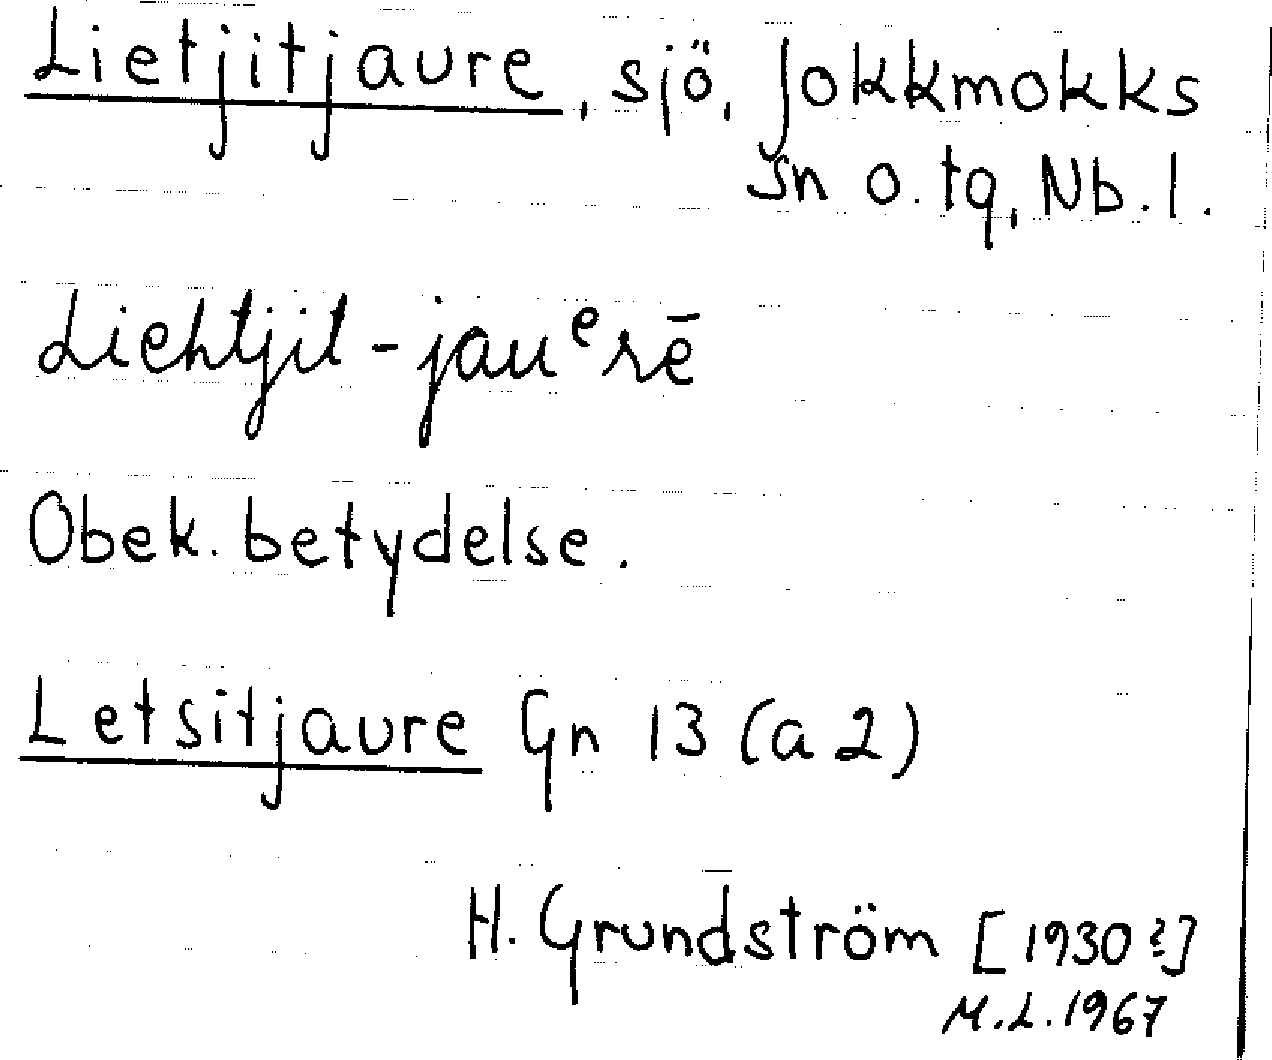 Lietjitjaure, sjö, Jokkmokks
sn o. tg, Nb. l.
Liehtjit-jauᵉrē
Obek. betydelse.
Letsitjaure Gn 13 (a 2)
H. Grundström [1930?]
M.L. 1967